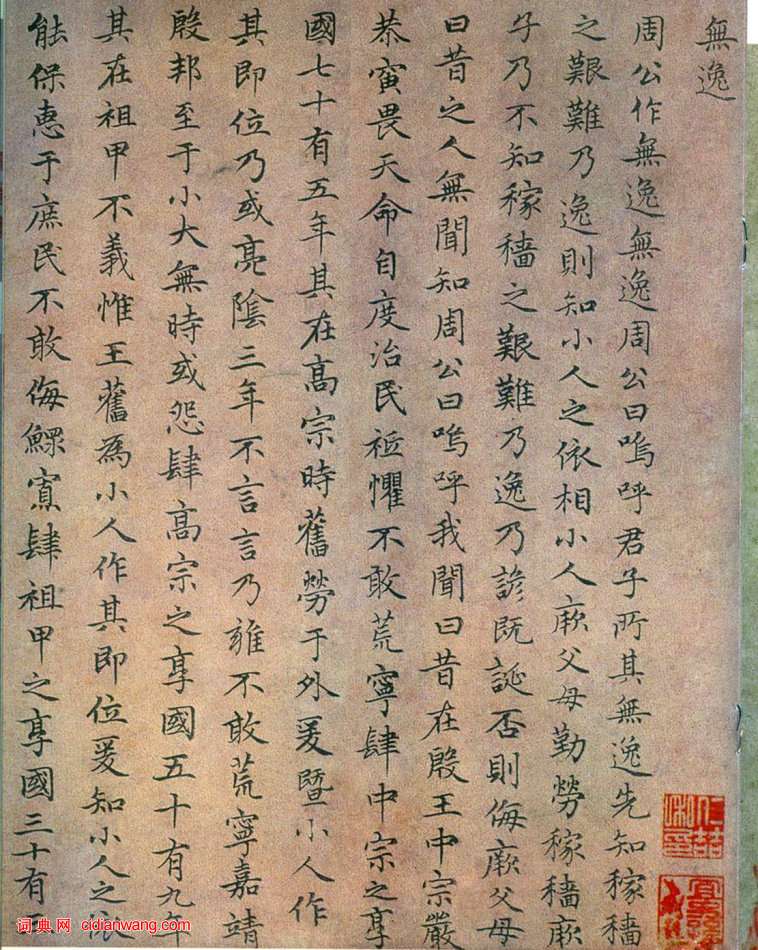 無逸
周公作無逸無逸周公曰嗚呼君子所其無逸先知稼穡
之艱難乃逸則知小人之依相小人厥父母勤勞稼穡厥
子乃不知稼穡之艱難乃逸乃諺既誕否則侮厥父母
曰昔之人無聞知周公曰嗚呼我聞曰昔在殷王中宗嚴
恭寅畏天命自度治民祗懼不敢荒寧肆中宗之享
國七十有五年其在高宗時舊勞于外爰暨小人作
其即位乃或亮陰三年不言言乃雍不敢荒寧嘉靖
殷邦至于小大無時或怨肆高宗之享國五十有九年
其在祖甲不義惟王舊為小人作其即位爰知小人之依
能保惠于庶民不敢侮鰥寡肆祖甲之享國三十有三
词典网 cidianwang.com